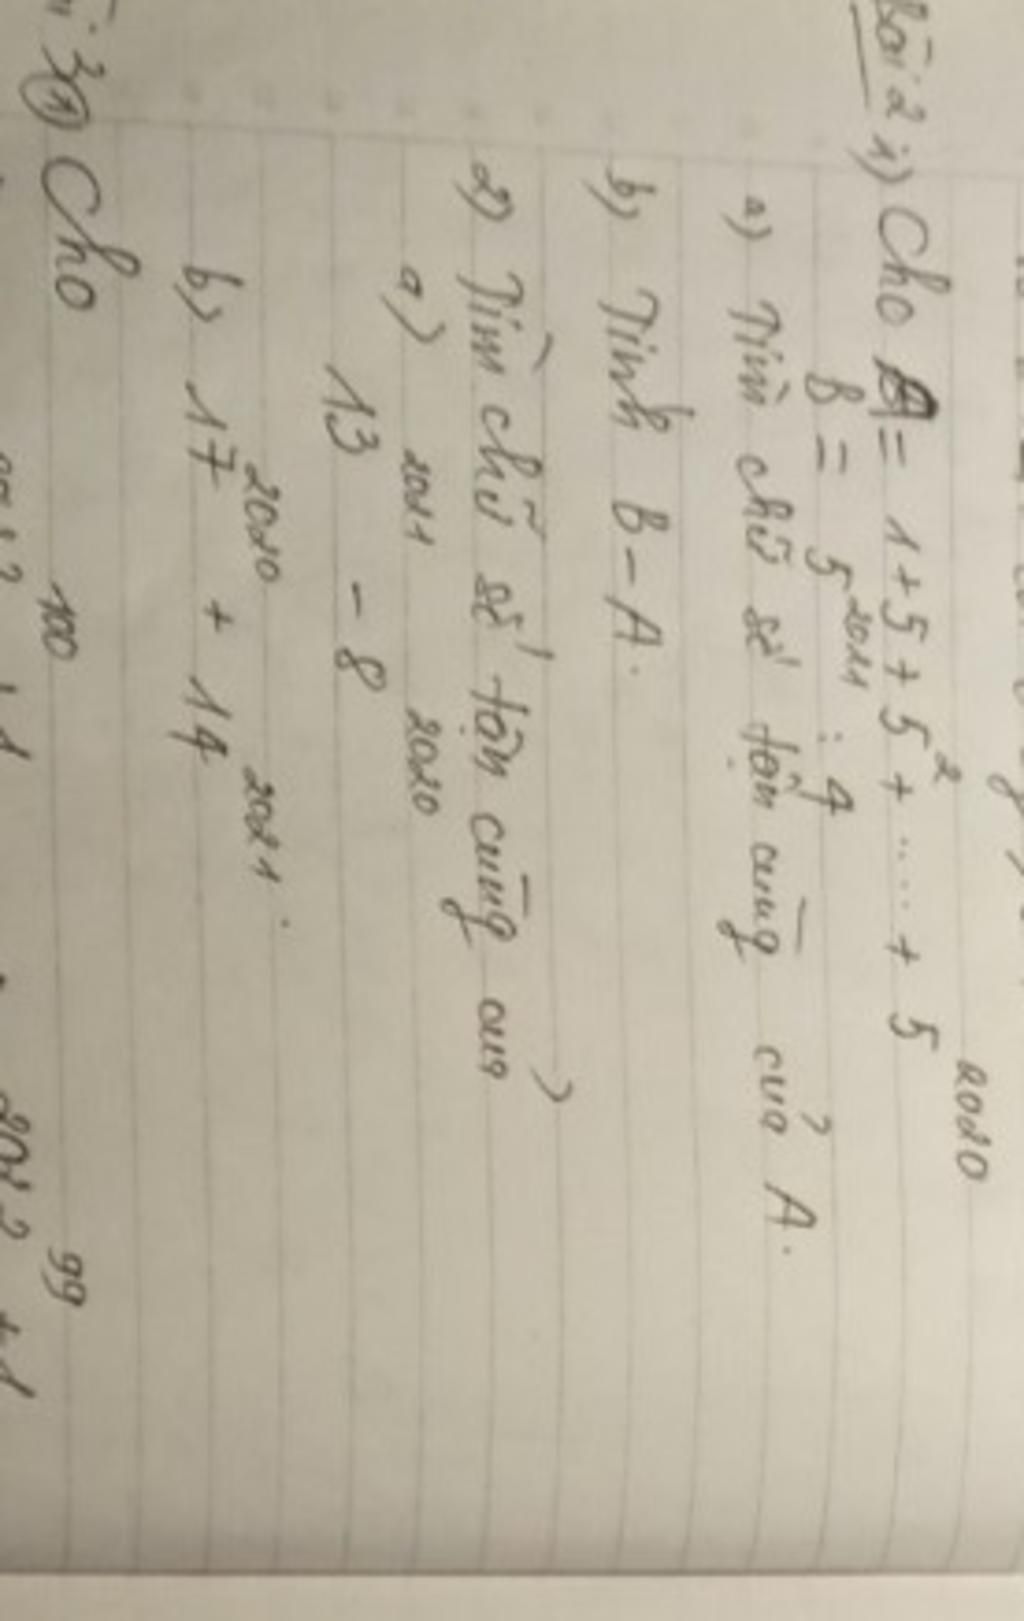 Bài 2 1) Cho A = 1 + 5 + 5² + ..... + 5²⁰²⁰
B = 5²⁰²¹ : 4
a) Tìm chữ số tận cùng của A.
b) Tính B - A.
2) Tìm chữ số tận cùng của
a) 13²⁰²¹ - 8²⁰²⁰
b) 17²⁰²⁰ + 14²⁰²¹.
3 ① Cho
100
99